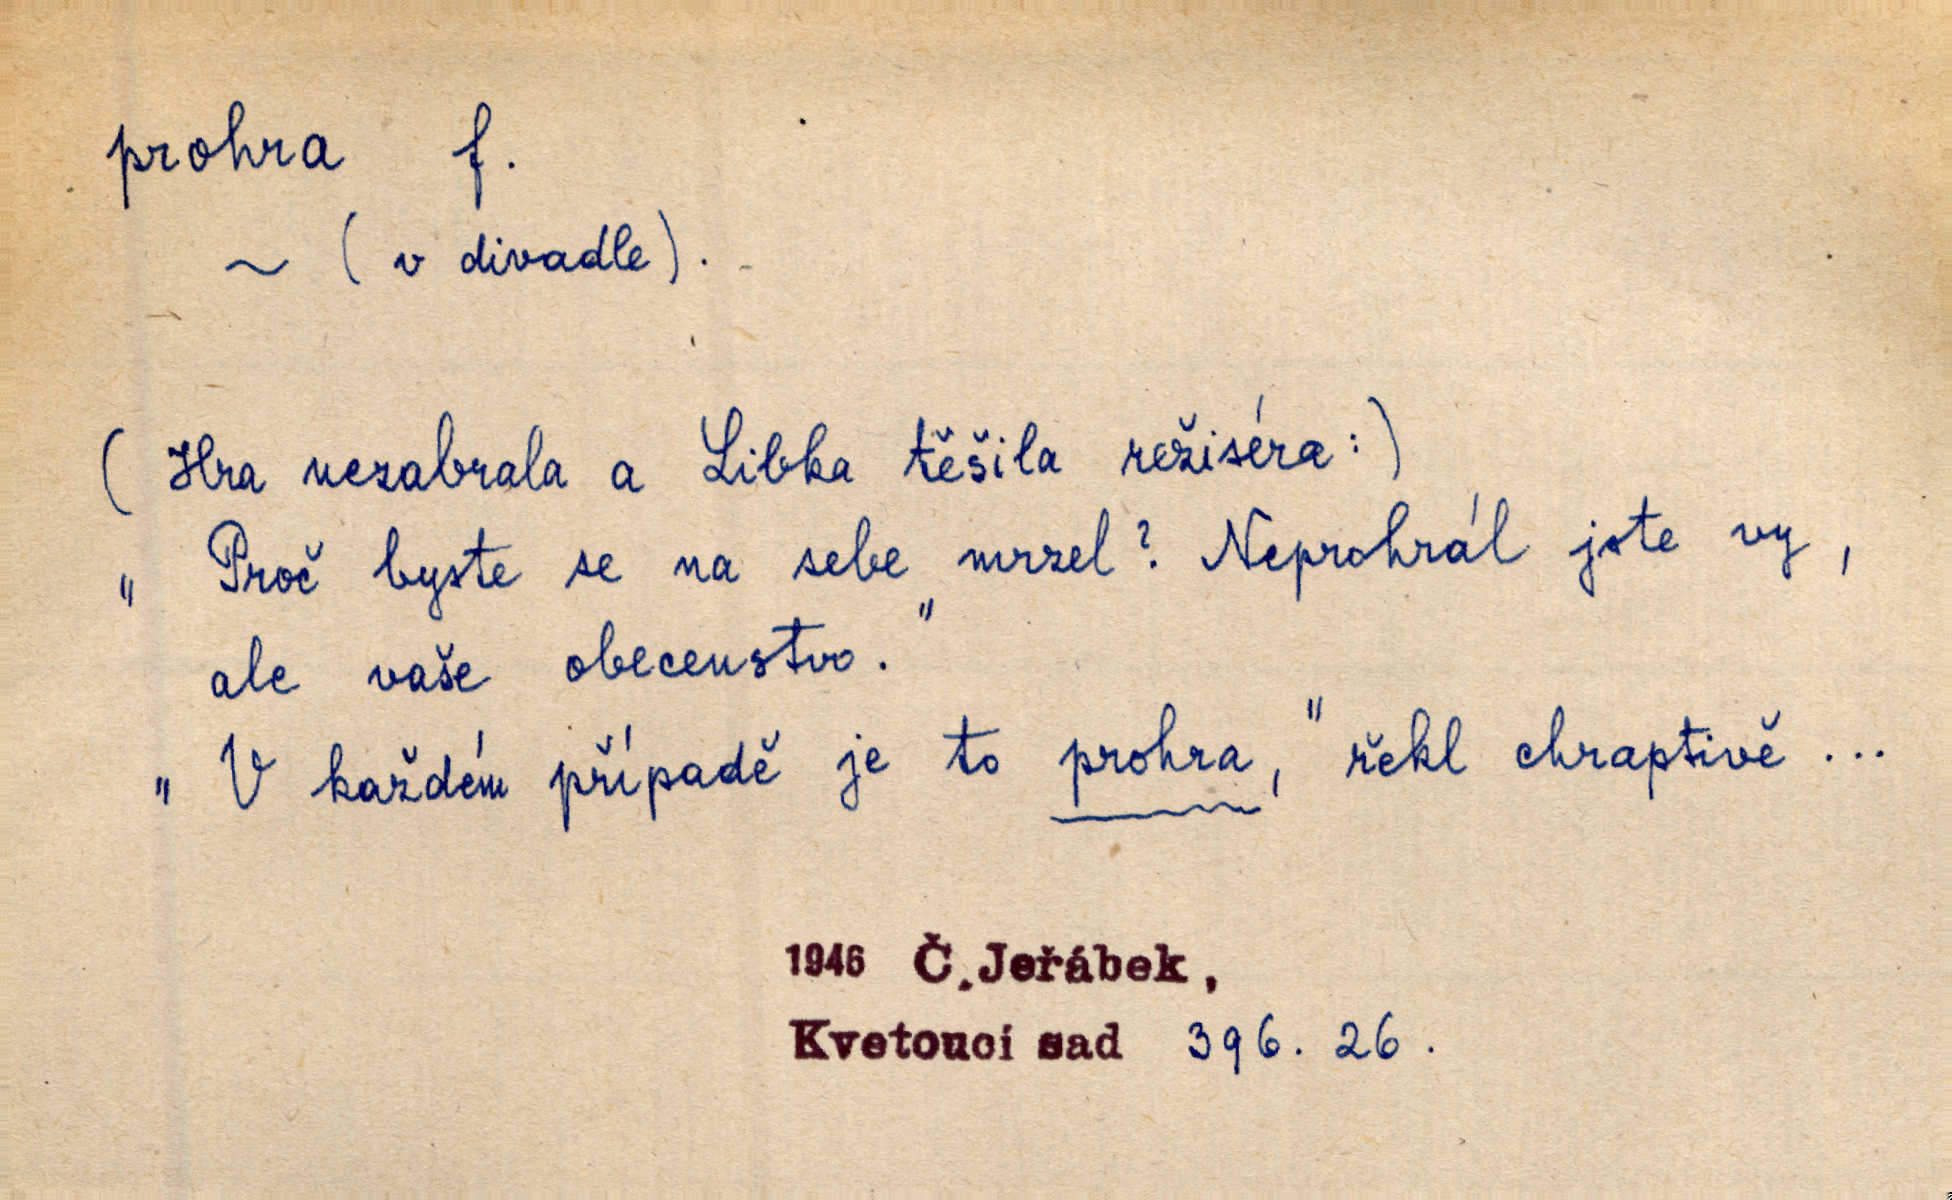 prohra f.
~ (v divadle).
(Hra nezabrala a Libka těšila režiséra:)
„Proč byste se na sebe mrzel? Neprohrál jste vy,
ale vaše obecenstvo."
„V každém případě je to prohra," řekl chraptivě ...
1946 Č.Jeřábek,
Kvetoucí sad 396. 26.